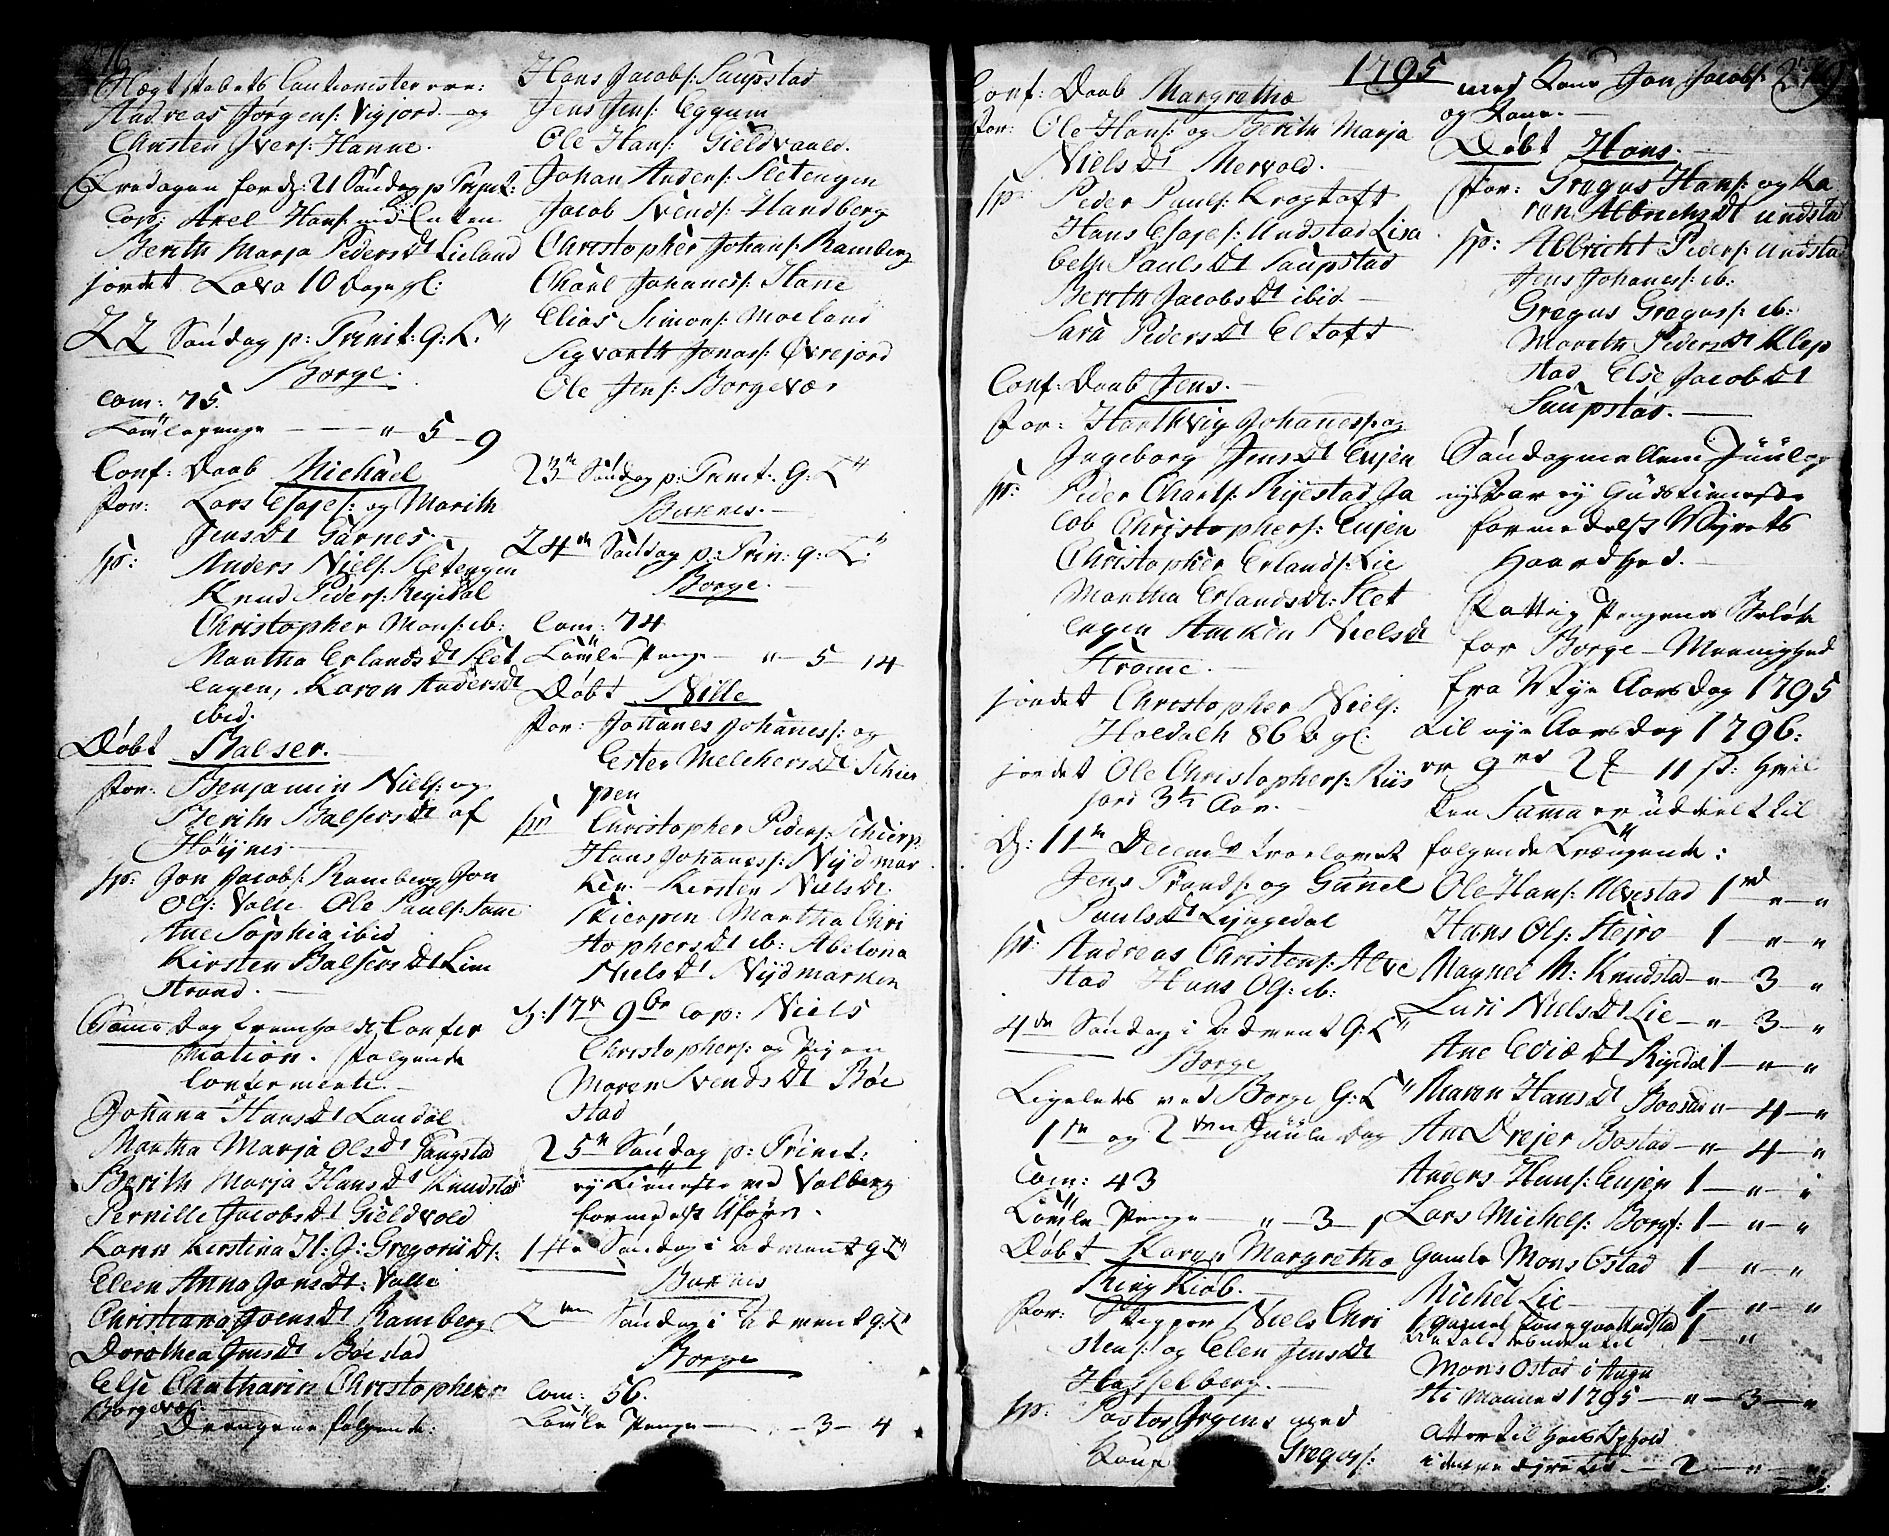 Ægteskabets Cautionister var:
Andreas Jörgens: Vigjord og
Christen Jvers: Hanne.
Fredagen for d: 21 Söndag p Trinit:
Cop: Axel Hans: med Enken
Berith Marja Peders Dt Lieland
jordet Lava 10 Dage gl:
22 Söndag p: Trinit: G: T:
Borge.
Com: 75.
Tavle penge — — — " 5 - 9
Conf: Daab Michael
For: Lars Esajes: og Marith
Jens Dt Garnes.
Sp: Anders Niels: Sletengen
Knud Peders: Reigdal
Christopher Mons: ib:
Martha Erlands Dt Slet
engen, Karen Anders Dt
ibid.
Döbt Balser.
For: Benjamin Niels: og
Berith Balsers Dt af
Höynes
Sp: Jon Jacobs: Ramberg Jon
Ols: Valle Ole Pauls: Sund
Ane Sophia ibid
Kirsten Balsers Dt Lim
strand.
Samme Dag fremholdt Confir
mation. Fölgende
Confirmerte.
Johana Hans Dt Landöl
Martha Marja Ols Dt Tangstad
Berith Marja Hans Dt Knudstad
Pernille Jacobs Dt Gieldvold
Karen Kirstina H: G: Gregorii Dt:
Eleen Anna Jons Dt: Valle
Christiana Joens Dt Ramberg
Dorothea Jens Dt Böestad
Else Chatharin Christophers
Borgevær.
Drengene fölgende:
Hans Jacobs: Saupstad
Jens Jens: Eggum
Ole Hans: Gieldvald.
Johan Anders: Sletengen
Jacob Svends: Handberg
Christopher Johans: Ramberg
Charl Johanes: Hane
Elias Simons: Moeland
Segvarth Jonas: Övrejord
Ole Jens: Borgevær
23de Söndag p: Trinit: G: T:
Buxnes.
24de Söndag p: Trin: G: T:
Borge.
Com: 74
Tavle Penge — " — 5 - 14
Döbt Nille
For: Johanes Johanes: og
Ester Melchers Dt Schier
pen
Sp: Christopher Peders: Schierp
Hans Johanes: Nydmar
ken. Kirsten Niels Dt:
Skierpen Martha Chri
stophers Dt ib: Abelona
Niels Dt Nydmarken
D: 17de 9br Cop: Niels
Christophers: og Pigen
Maren Svends Dt Böe
stad
25de Söndag p: Trinit:
ej tieneste ved Valberg
formedelst Uföre.
1ste Söndag i Advent G: T:
Buxnes
2den Söndag i Advent G: T:
Borge
Com: 56.
Tavle Penge — — 3 - 4
1795
Conf: Daab Margretha
For: Ole Hans: og Berith Marja
Niels Dt Mervold.
Sp: Peder Pauls: Krogtoft
Hans Esajes: Undstad Lisa
beth Pauls Dt Saupstad
Berith Jacobs Dt ibid.
Sara Peders Dt Eltoft
Conf: Daab Jens.
For: Harthvig Johanes: og
Ingeborg Jens Dt Eujen
Sp: Peder Charls: Rystad Ja
cob Christophers: Eujen
Christopher Erlands: Lie
Martha Erlands Dt: Slet
engen Anken Niels Dt
Ströme.
jordet Christopher Niels:
Holdalh 86 A gl:
jordet Ole Christophers: Riis
fard 3½ Aar.
D: 11te Decemb trolovet
Jens Tronds: og Gunel
Pauls Dt Lyngedal
Sp: Andreas Christens: Alve
stad Hans Ols: ib:
4de Söndag i Advent G: T:
Borge
Ligeledes ved Borge G: T:
1ste og 2den Juule Dag
Com: 43
Tavle Penge — " — 3 - 1
Döbt Karen Margretha
Ring Kiöb.
For: Skipper Niels Chri
stens: og Elen Jens Dt
Hasselberg.
Sp: Pastor Irgens med
Kone Gregers:
med Kone Jon Jacobs: 279
og Kone.
Döbt Hans.
For: Gregus Hans: og Ka
ren Albrichts Dt Undstad
Sp: Albricht Peders: Undstad
Jens Johanes: ib:
Gregus Gregus: ib:
Mareth Peders Dt Klep
stad Else Jacobs Dt
Saupstad.
Söndag mellem Juul og
nytaar ej Gudstieneste
formedelst Vejrets
Haardhed.
Fattig Pengene Belöb
for Borge Meenighed
fra Nyt Aars dag 1795
til nye Aarsdag 1796:
er 9rd 2 11 s: hvil
ken Suma er uddeelt til
fölgende Trængende:
Ole Hans: Alvestad 1rd " — "
Hans Ols: Steiro 1 — " — "
Magnel M: Knudstad — " — 3 — "
Lari Niels Dt Lie — " — 3 — "
Ane Evic Dt Rigedal 1 — " — "
Maren Hans Dt Boestad " — 4 — "
An Drejer Bostad — " — 4 — "
Anders Hans: Eujen 1 — " — "
Lars Michels: Borgf: 1 — " — "
Gamle Mons Ostad 1 — " — "
Michel Lie — 1 — " — "
1 gamel Kone paa Undstad 1 — "
til
Mons Ostad i Augu
sti Maaned 1795 — " — 3 — "
Atter til hans Ophold
i denne — 2 — " — "